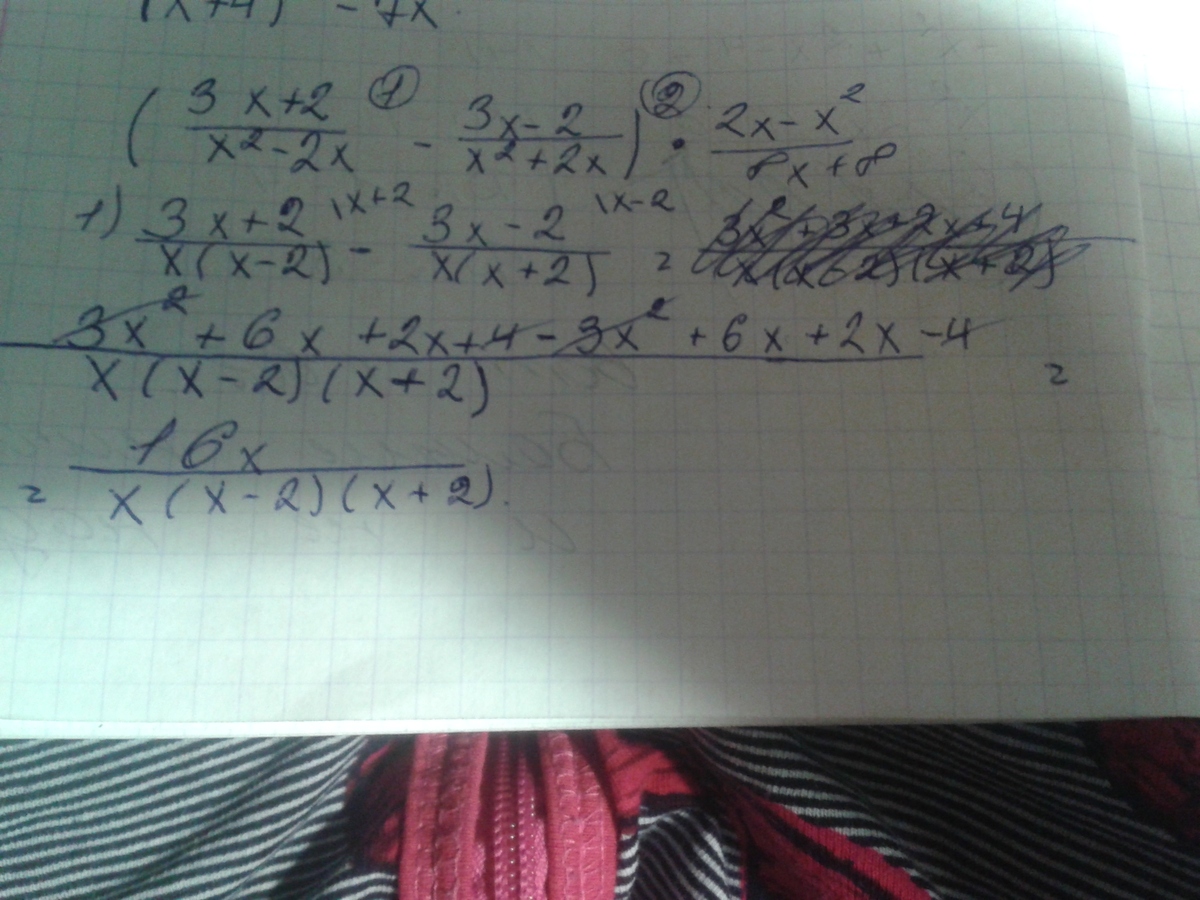 (x+4) - 7x
( (3x+2)/(x²-2x) ① - (3x-2)/(x²+2x) ) ② · (2x-x²)/(8x+8)
1) (3x+2)/(x(x-2)) \x+2 - (3x-2)/(x(x+2)) \x-2 =
(3x²+6x+2x+4-3x²+6x+2x-4)/(x(x-2)(x+2)) =
= 16x/(x(x-2)(x+2)).